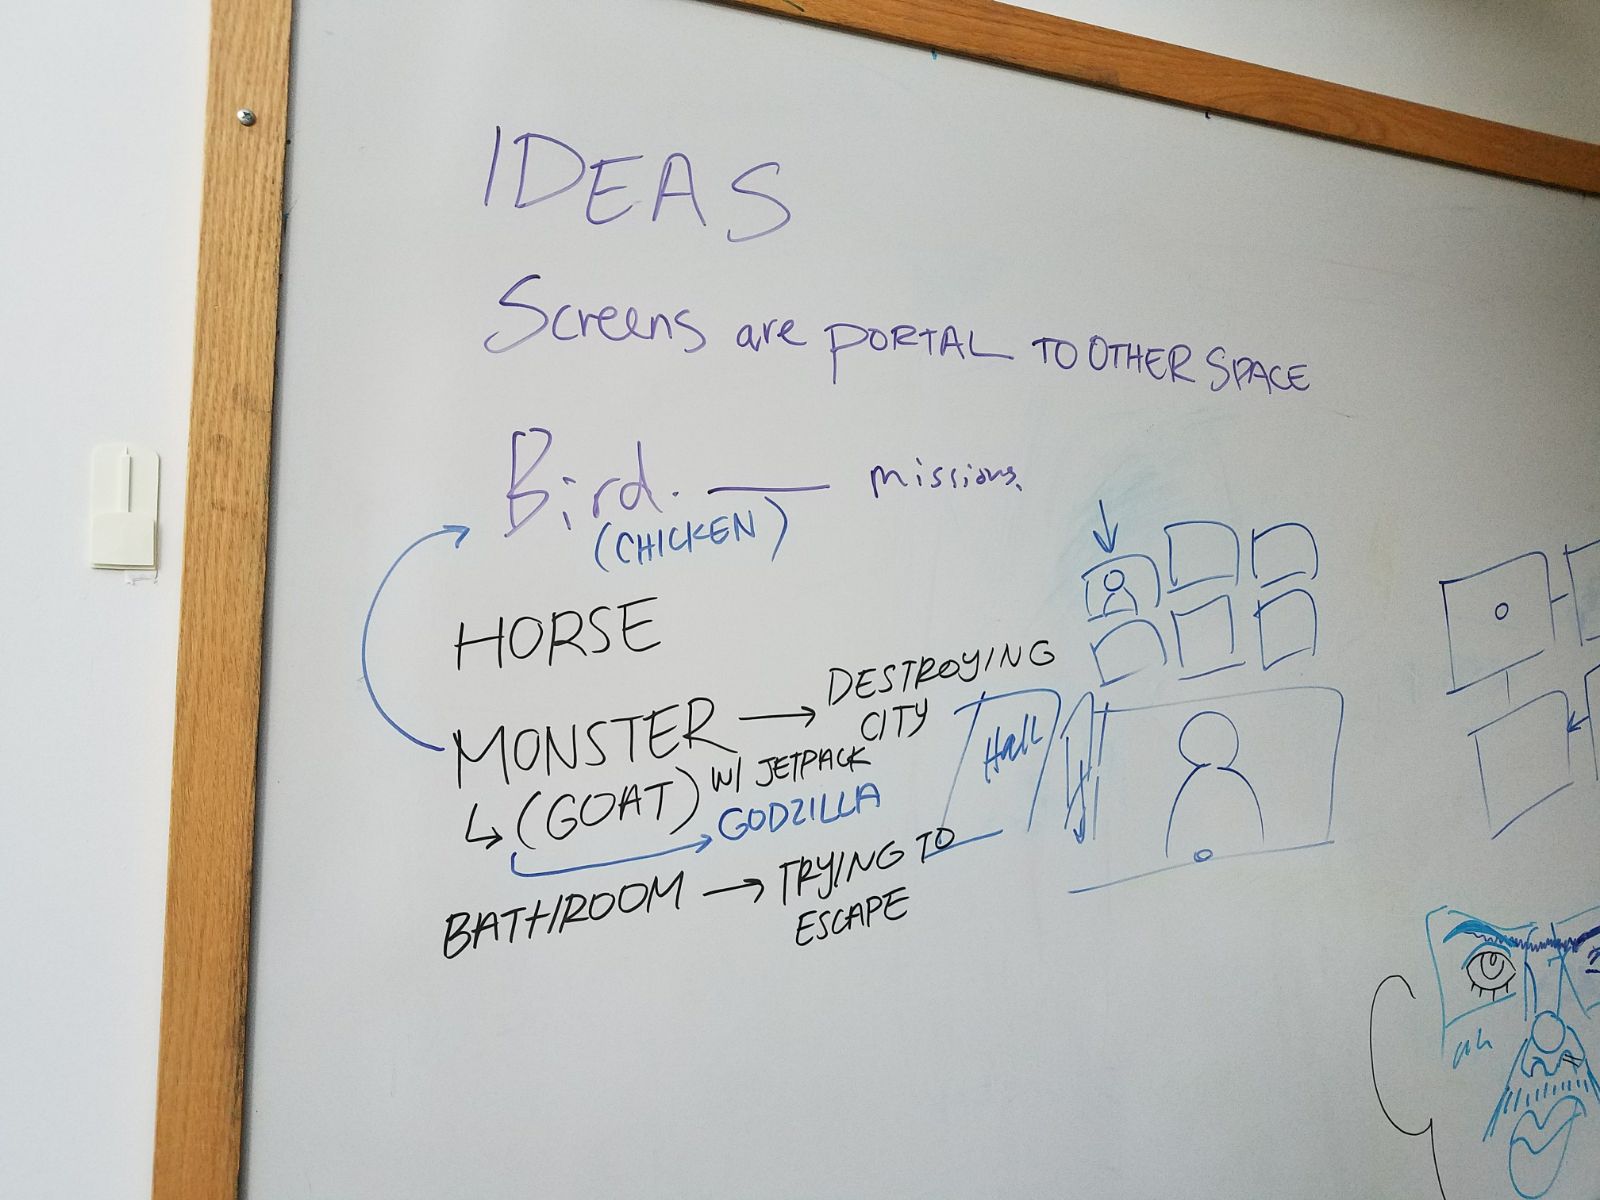 IDEAS
Screens are PORTAL TO OTHER SPACE
Bird. ____ missions.
(CHICKEN)
HORSE
MONSTER → DESTROYING
CITY
↳ (GOAT) W/ JETPACK
→ GODZILLA
BATHROOM → TRYING TO
ESCAPE
Hall